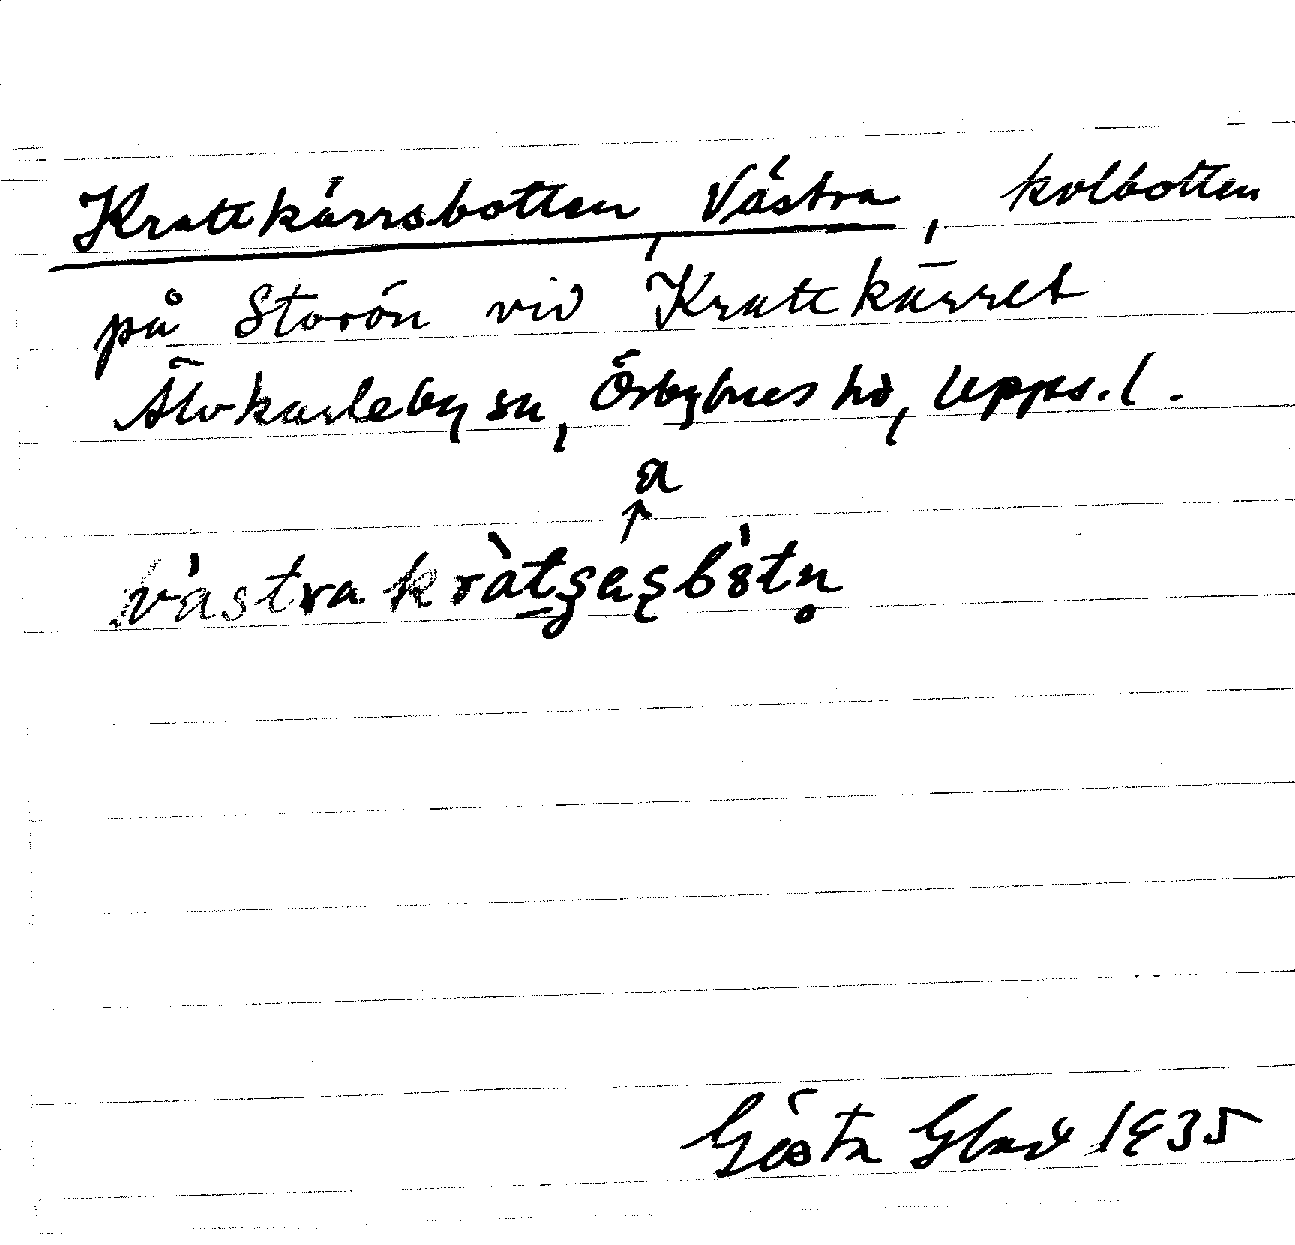 Krattkärrsbotten, Västra, kolbotten
på Storön vid Krattkärret
Älvkarleby sn, Örbyhus hd, Upps. l.
a
Gösta Glad 1935